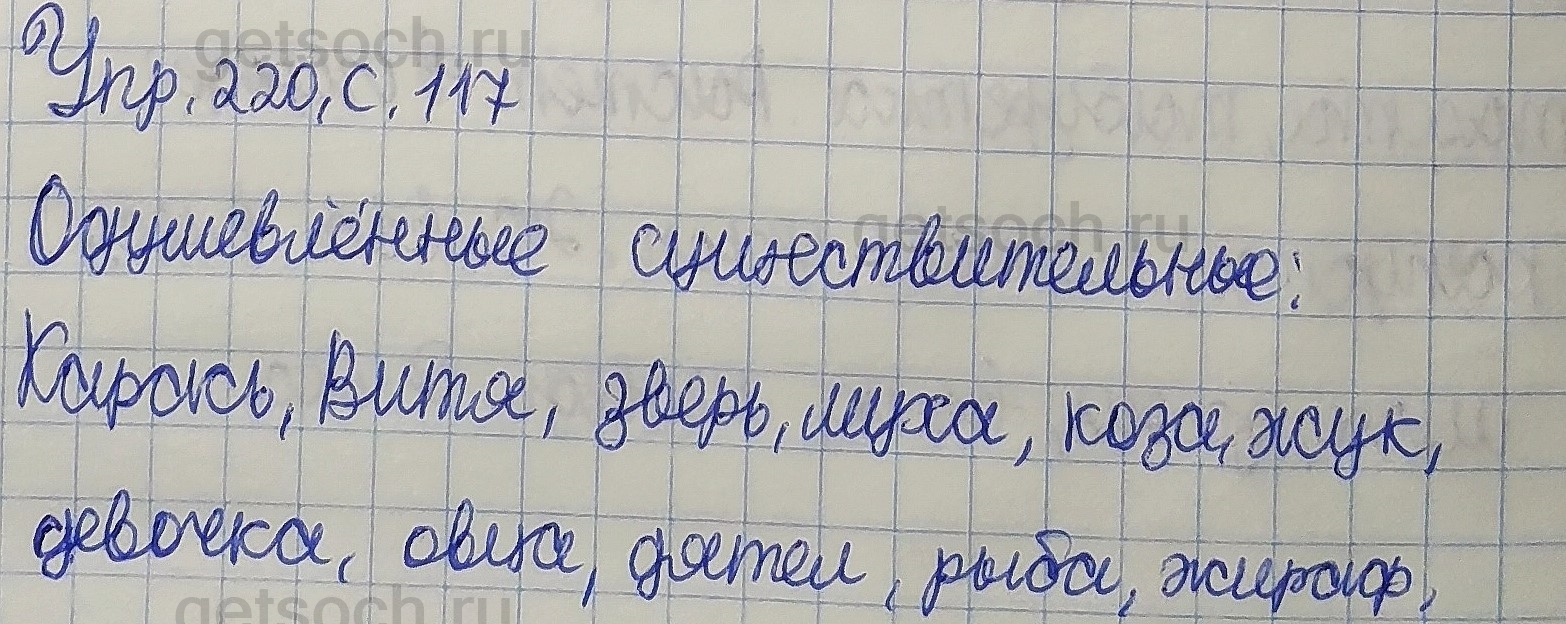 Упр. 220, с. 117
Одушевлённые существительные:
Карась, Витя, зверь, муха, коза, жук,
девочка, овца, дятел, рыба, жираф,
getsoch.ru
getsoch.ru
getsoch.ru